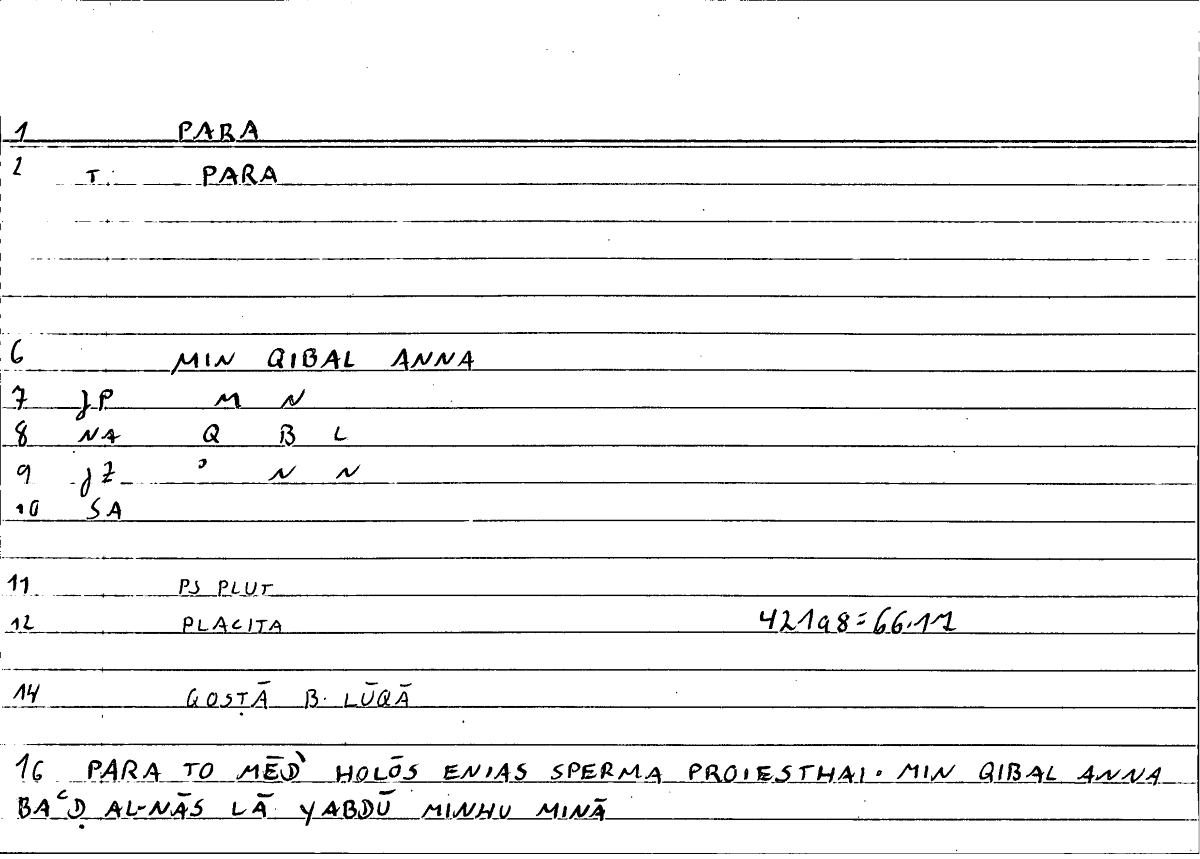 1 PARA
2 T: PARA
6 MIN QIBAL ANNA
7 JP M N
8 NA Q B L
9 JZ ʾ N N
10 SA
11 PS PLUT
12 PLACITA 421a8=66.11
14 QOSṬĀ B. LŪQĀ
16 PARA TO MĒD' HOLŌS ENIAS SPERMA PROIESTHAI. MIN QIBAL ANNA
BAʿḌ AL-NĀS LĀ YABDŪ MINHU MINĀ